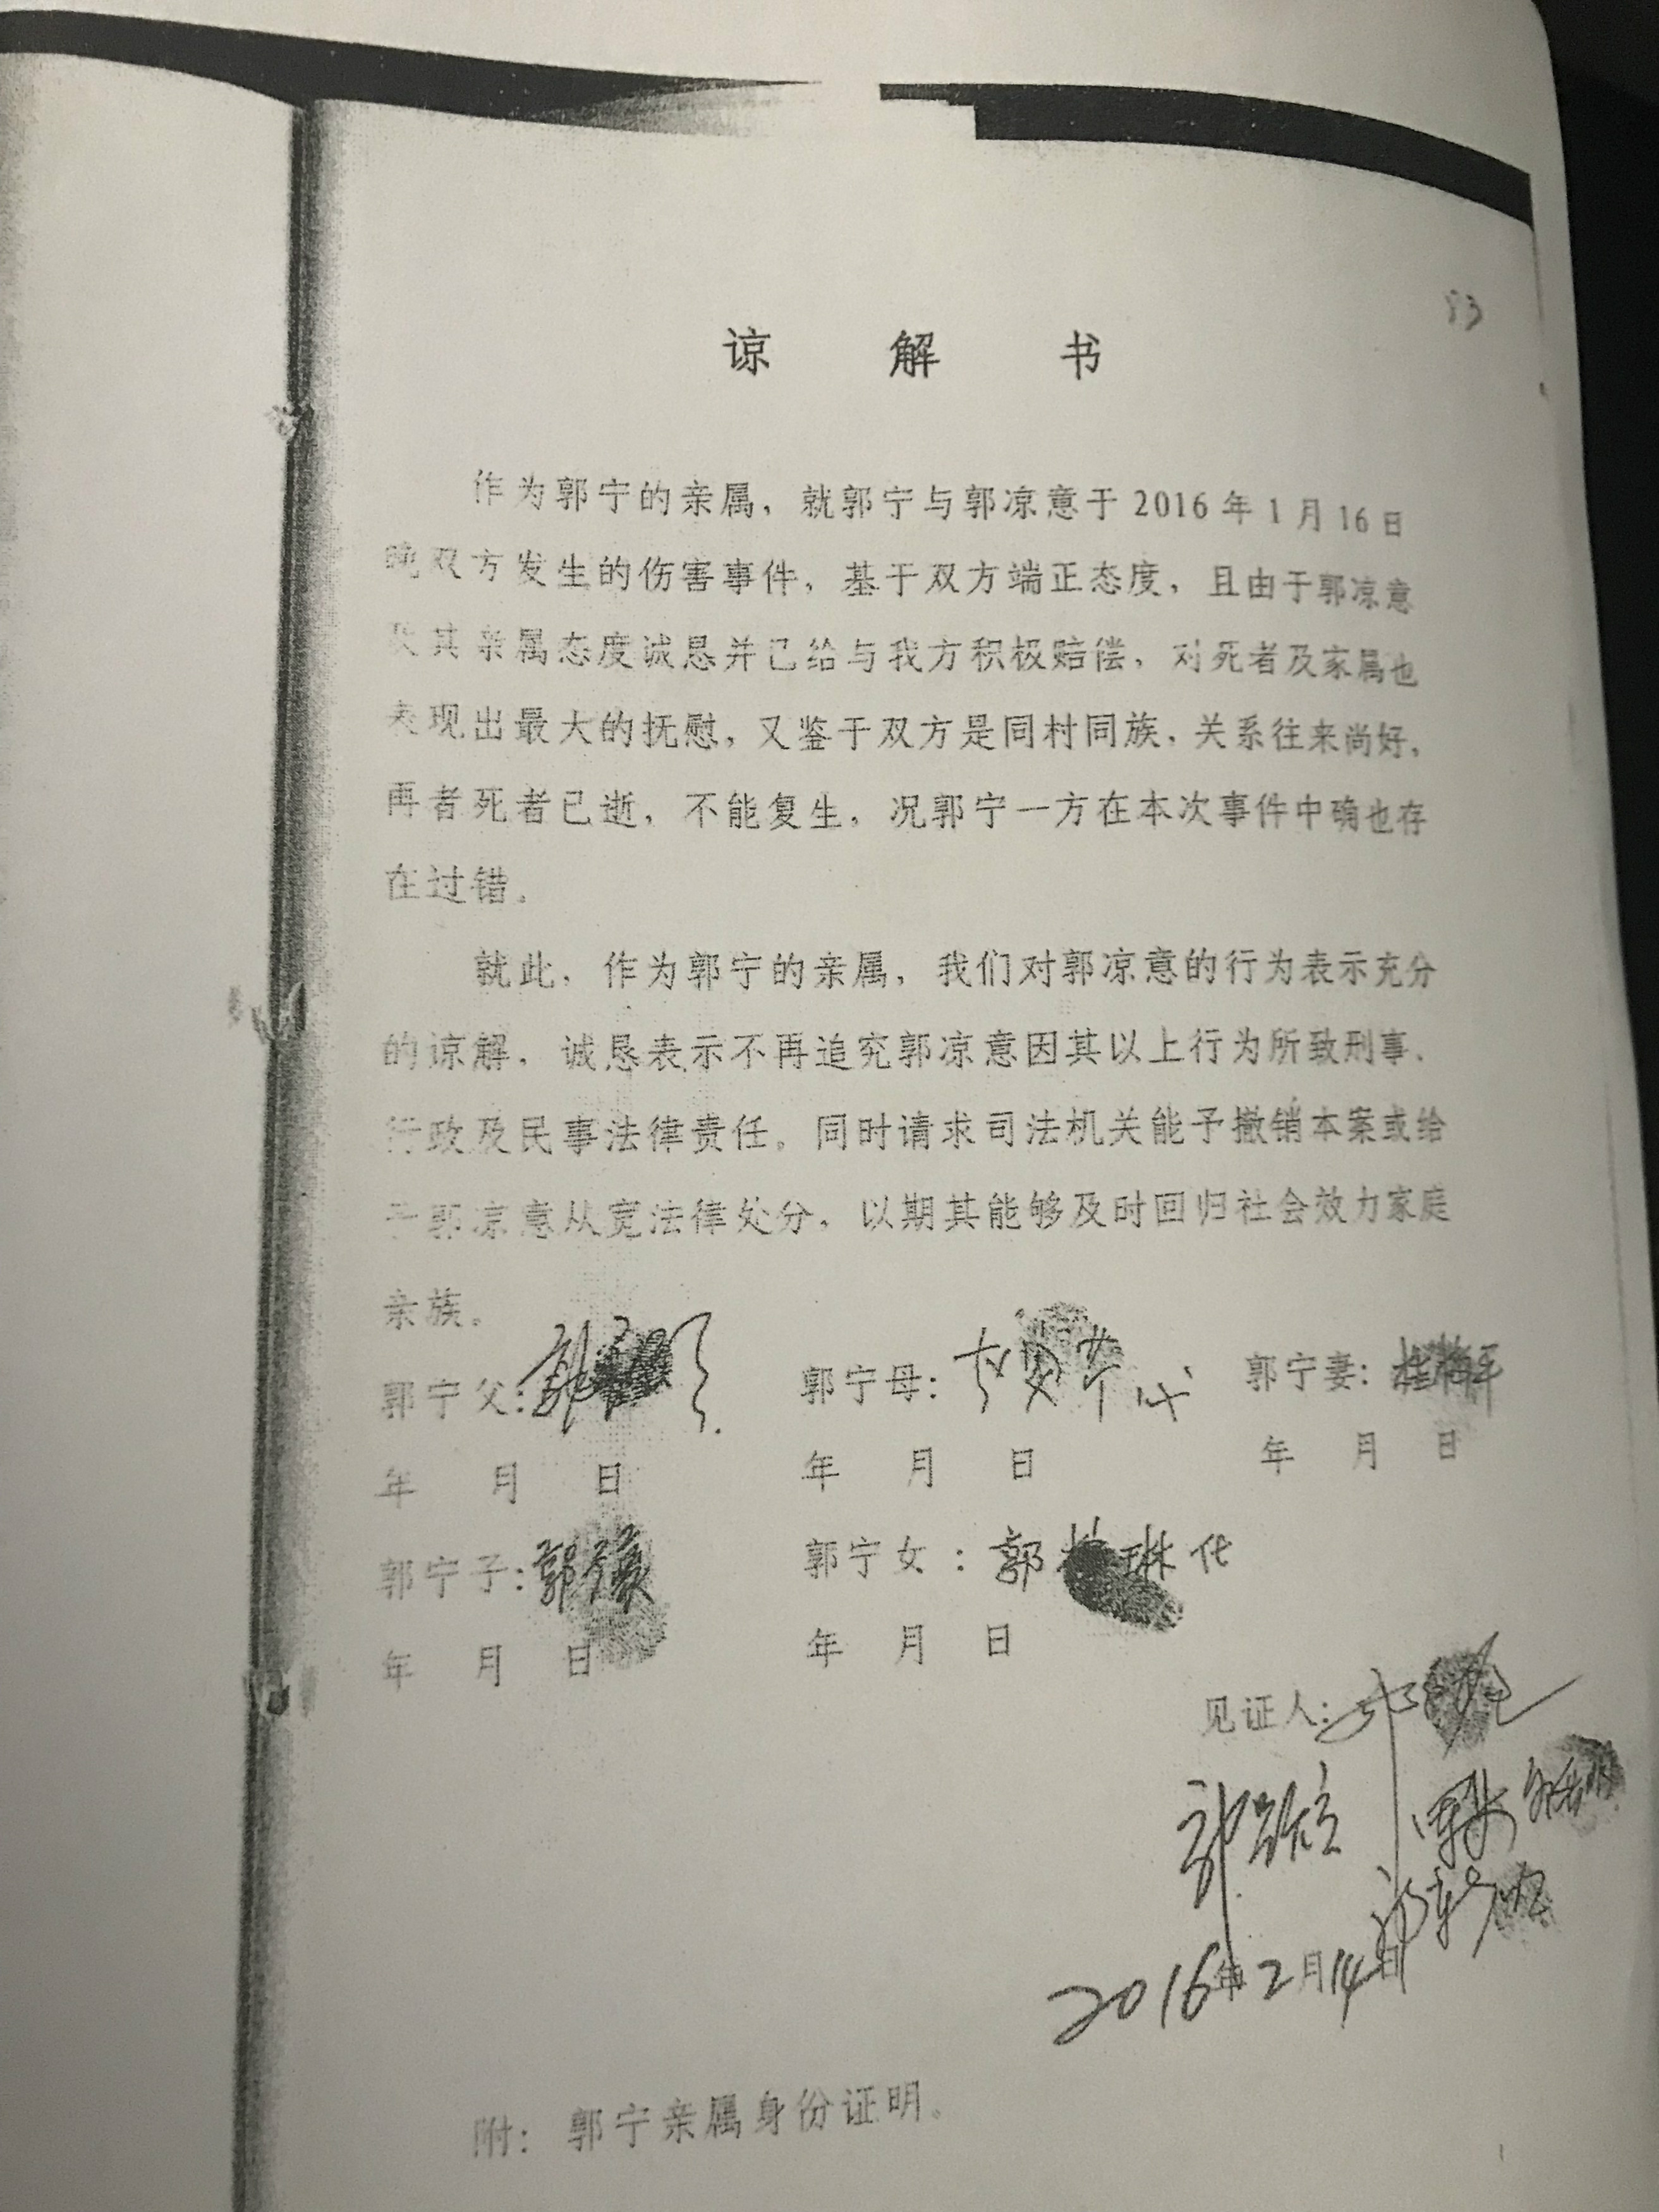 83
谅 解 书
作为郭宁的亲属，就郭宁与郭凉意于2016年1月16日
晚双方发生的伤害事件，基于双方端正态度，且由于郭凉意
及其亲属态度诚恳并已给与我方积极赔偿，对死者及家属也
表现出最大的抚慰，又鉴于双方是同村同族，关系往来尚好，
再者死者已逝，不能复生，况郭宁一方在本次事件中确也存
在过错。
就此，作为郭宁的亲属，我们对郭凉意的行为表示充分
的谅解，诚恳表示不再追究郭凉意因其以上行为所致刑事、
行政及民事法律责任。同时请求司法机关能予撤销本案或给
予郭凉意从宽法律处分，以期其能够及时回归社会效力家庭
亲族。
郭宁父：郭 郭宁母： 郭宁妻：
年 月 日 年 月 日 年 月 日
郭宁子：郭 郭宁女：郭 琳 代
年 月 日 年 月 日
见证人：
2016年2月14日
附：郭宁亲属身份证明。